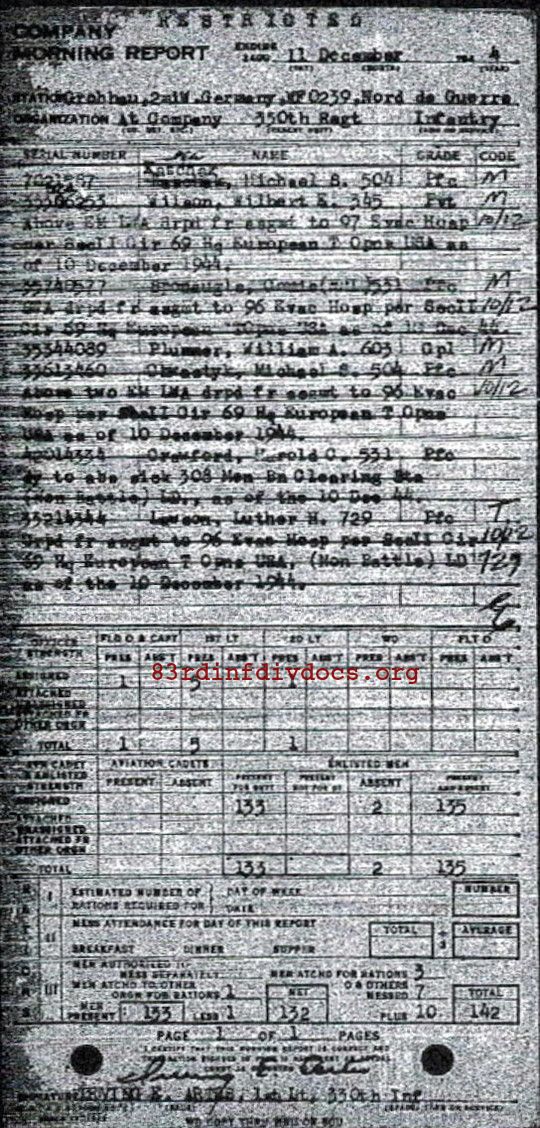 RESTRICTED
COMPANY
MORNING REPORT ENDING 2400 11 December 4
STATION Grobhau, 2miW, Germany, WF0239, Nord de Guerre
ORGANIZATION At Company 330th Regt Infantry
SERIAL NUMBER NAME GRADE CODE
Michael S. 504 Pfc M
Wilson, Wilbert E. 345 Pvt M
Above EM LWA drpd fr asgmt to 97 Evac Hosp 10/12
per SecII Cir 69 Hq European T Opns USA as
of 10 December 1944.
531 Pfc M
drpd fr asgmt to 96 Evac Hosp per SecII 10/12
Cir 69 Hq European TOpns USA as of 10 Dec 44.
35344089 Plummer, William A. 603 Cpl M
33613460 Michael S. 504 Pfc M
Above two EM LWA drpd fr asgmt to 96 Evac 10/12
Hosp per SecII Cir 69 Hq European T Opns
USA as of 10 December 1944.
Crawford, Harold C. 531 Pfc
dy to abs sick 308 Men Bn Clearing Sta
(Non Battle) LD., as of the 10 Dec 44.
35214344 Lawson, Luther H. 729 Pfc T
Drpd fr asgmt to 96 Evac Hosp per SecII Cir 10/12
69 Hq European T Opns USA, (Non Battle) LD 729
as of the 10 December 1944.
OFFICER STRENGTH FLD O & CAPT 1ST LT 2D LT WO FLT O
PRES ABS'T PRES ABS'T PRES ABS'T PRES ABS'T PRES ABS'T
ASSIGNED 1 5 1
83rdinfdivdocs.org
ATTACHED
UNASSIGNED
ATTACHED FR
OTHER ORGN
TOTAL 1 5 1
AVN CADET & ENLISTED STRENGTH AVIATION CADETS ENLISTED MEN
PRESENT ABSENT PRESENT FOR DUTY PRESENT NOT FOR DY ABSENT PRESENT AND ABSENT
ASSIGNED 133 2 135
ATTACHED
UNASSIGNED
ATTACHED FR
OTHER ORGN
TOTAL 133 2 135
RATIONS
I ESTIMATED NUMBER OF RATIONS REQUIRED FOR DAY OF WEEK DATE NUMBER
II MESS ATTENDANCE FOR DAY OF THIS REPORT TOTAL ÷ 3 AVERAGE
BREAKFAST DINNER SUPPER
III MEN AUTHORIZED TO MESS SEPARATELY MEN ATCHD FOR RATIONS 3
MEN ATCHD TO OTHER ORGN FOR RATIONS 1 NET O & OTHERS MESSED 7 TOTAL
MEN PRESENT 133 LESS 1 132 PLUS 10 142
PAGE 1 OF 1 PAGES
I CERTIFY THAT THIS MORNING REPORT IS CORRECT AND
SIGNATURE IRVING E. 1st Lt, 330th Inf